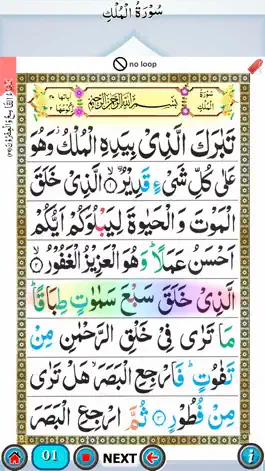 سُوْرَةُ الْمُلْكِ
no loop
سُوْرَةُ الْمُلْكِ
بِسْمِ اللّٰهِ الرَّحْمٰنِ الرَّحِيْمِ
تَبٰرَكَ الَّذِىْ بِيَدِهِ الْمُلْكُ وَهُوَ
عَلٰى كُلِّ شَىْءٍ قَدِيْرٌ ۙ﴿۱﴾ الَّذِىْ خَلَقَ
الْمَوْتَ وَالْحَيٰوةَ لِيَبْلُوَكُمْ اَيُّكُمْ
اَحْسَنُ عَمَلًا ؕ وَهُوَ الْعَزِيْزُ الْغَفُوْرُ ۙ﴿۲﴾
الَّذِىْ خَلَقَ سَبْعَ سَمٰوٰتٍ طِبَاقًا ؕ
مَا تَرٰى فِىْ خَلْقِ الرَّحْمٰنِ مِنْ
تَفٰوُتٍ ؕ فَارْجِعِ الْبَصَرَ هَلْ تَرٰى
مِنْ فُطُوْرٍ ﴿۳﴾ ثُمَّ ارْجِعِ الْبَصَرَ
01 NEXT